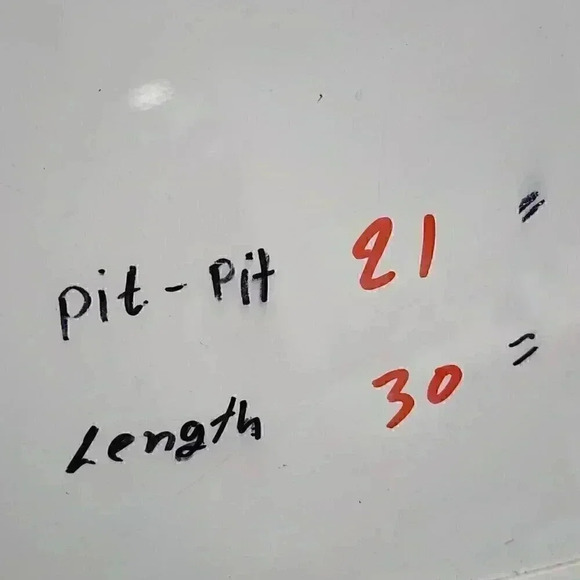 pit - pit 21 "
Length 30 "